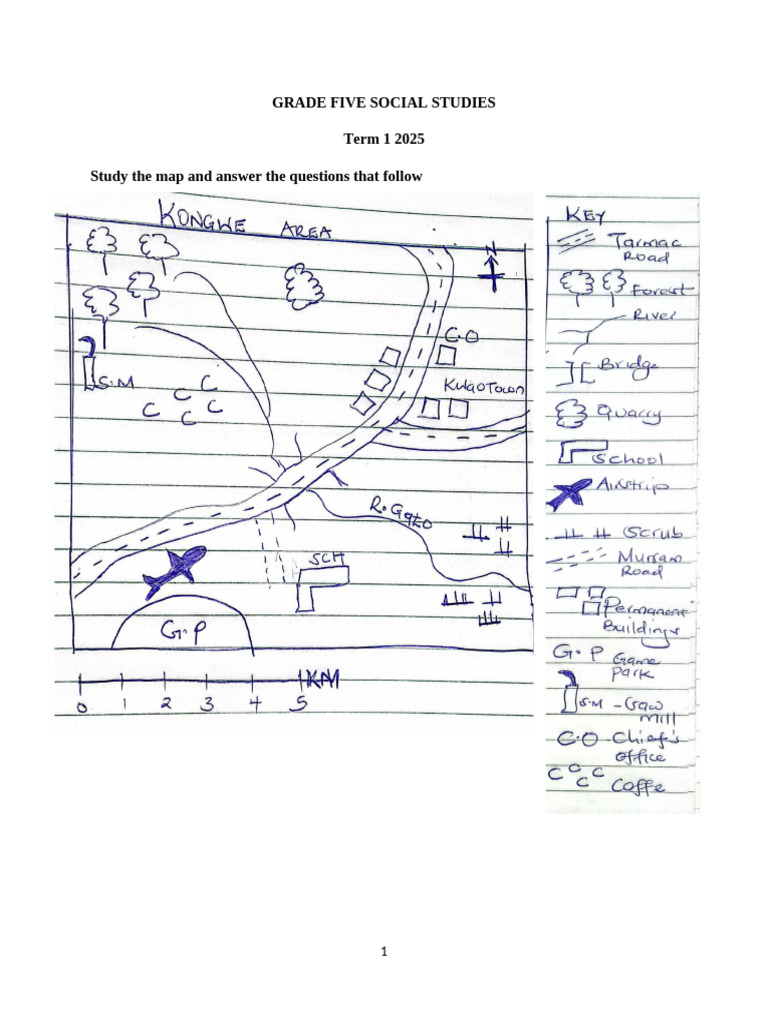 GRADE FIVE SOCIAL STUDIES
Term 1 2025
Study the map and answer the questions that follow
KONGWE AREA
N
C.O
S.M
C C C C C
KulgoTown
R. Gqto
SCH
G.P
KM
0 1 2 3 4 5
KEY
Tarmac
Road
Forest
River
Bridge
Quarry
School
Airstrip
Scrub
Murram
Road
Permanent
Buildings
G.P Game
Park
S.M - Saw
Mill
C.O Chief's
office
C C C C Coffe
1